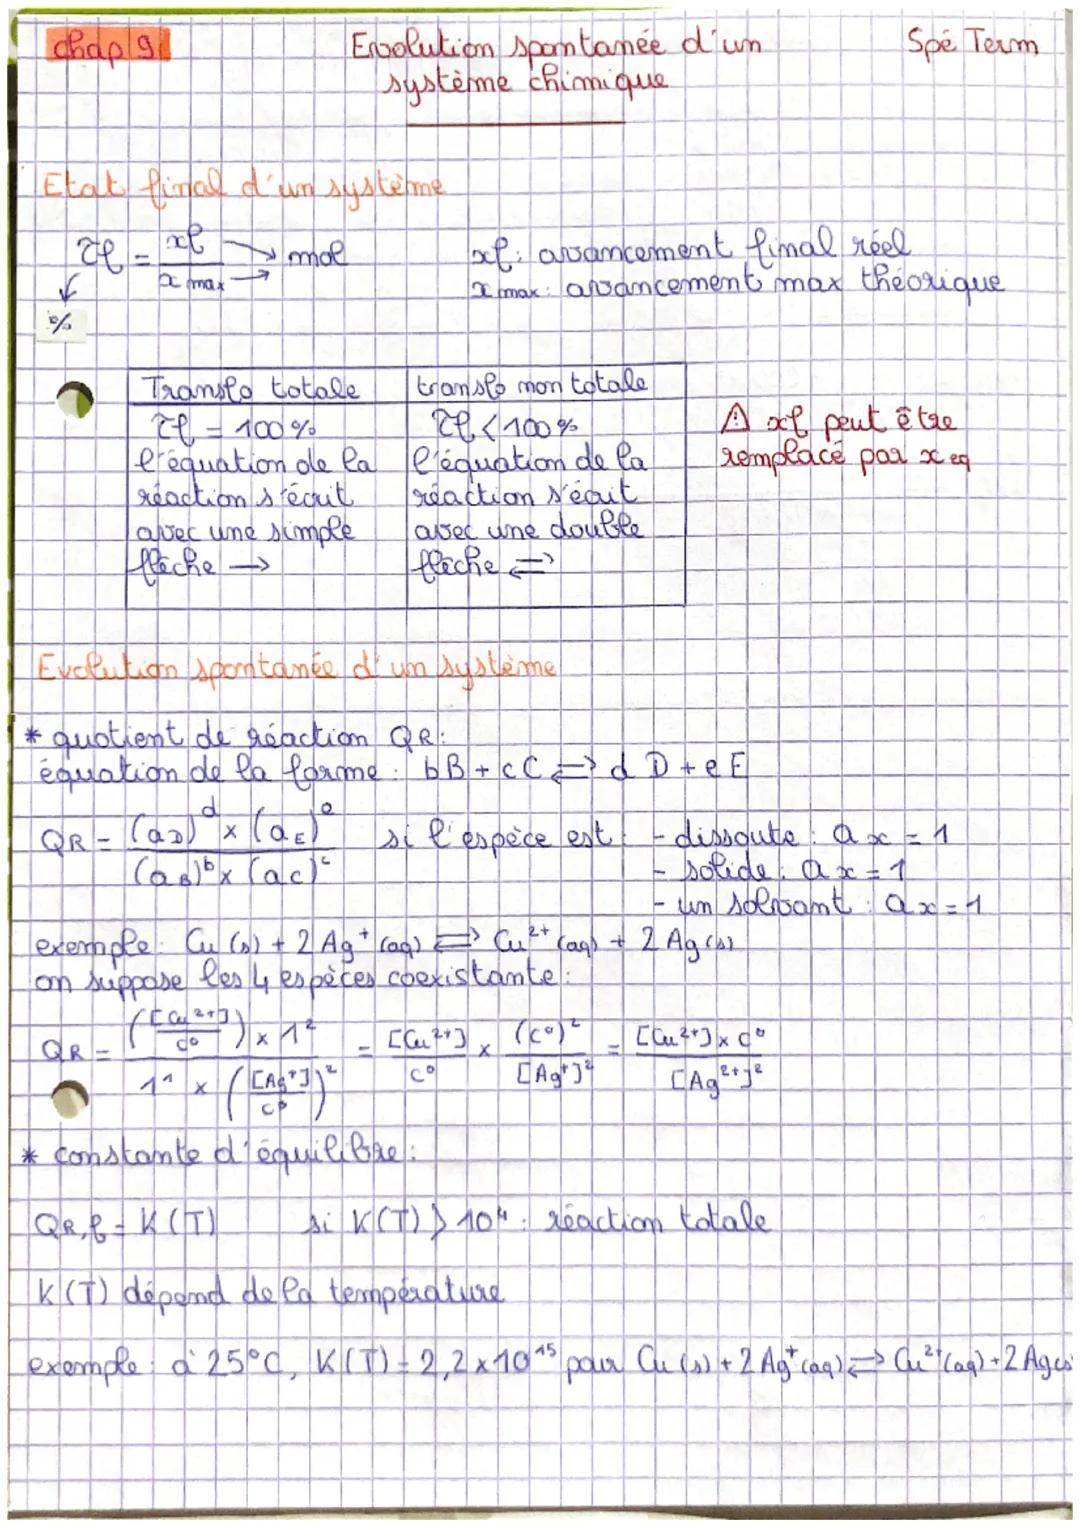 chap 9
Evolution spontanée d'un
système chimique
Spé Term
Etat final d'un système
τf = xf / x max → mol
%
xf : avancement final réel
x max : avancement max théorique
Transfo totale
τf = 100 %
l'équation de la
réaction s'écrit
avec une simple
flèche →
transfo non totale
τf < 100 %
l'équation de la
réaction s'écrit
avec une double
flèche ⇌
⚠ xf peut être
remplacé par x eq
Evolution spontanée d'un système
* quotient de réaction QR :
équation de la forme : bB + cC ⇌ dD + eE
QR = (aD)^d × (aE)^e / (aB)^b × (aC)^c si l'espèce est : - dissoute : ax = 1
- solide : ax = 1
- un solvant : ax = 1
exemple : Cu (s) + 2 Ag⁺ (aq) ⇌ Cu²⁺ (aq) + 2 Ag (s)
on suppose les 4 espèces coexistante :
QR = (([Cu²⁺]/c°) × 1²) / (1¹ × ([Ag⁺]/c°)²) = [Cu²⁺]/c° × (c°)²/[Ag⁺]² = [Cu²⁺] × c° / [Ag²⁺]²
* constante d'équilibre :
QR,f = K(T) si K(T) > 10⁴ : réaction totale
K(T) dépend de la température
exemple : à 25°C, K(T) = 2,2 × 10¹⁵ pour Cu (s) + 2 Ag⁺ (aq) ⇌ Cu²⁺ (aq) + 2 Ag (s)